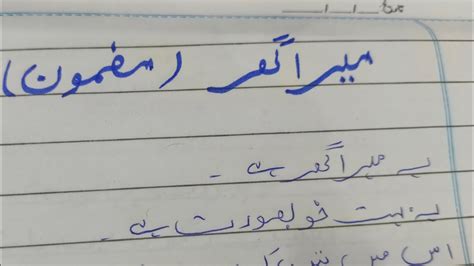 میرا گھر (مضمون)
یہ میرا گھر ہے۔
یہ بہت خوبصورت ہے۔
اس میں تین